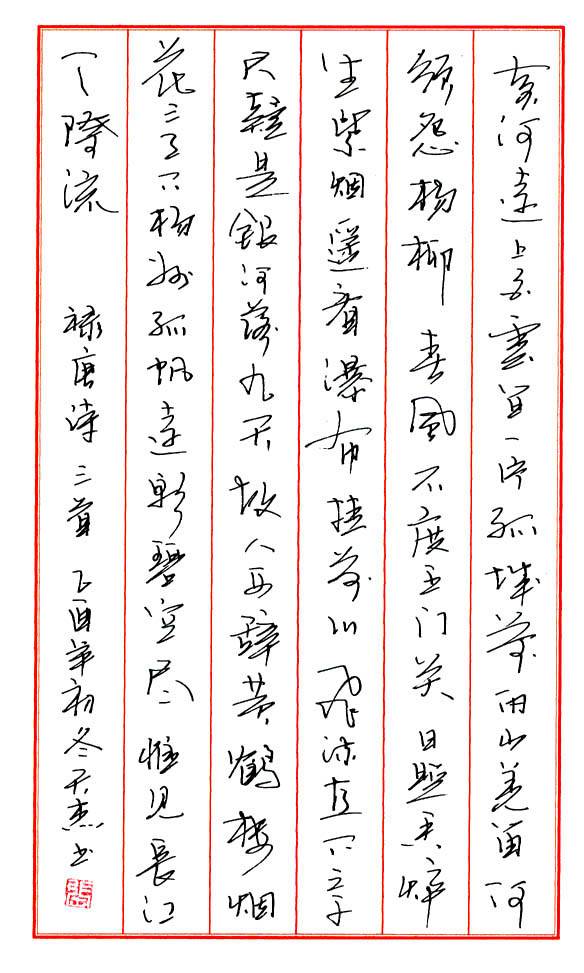 黄河遠上白雲间一片孤城萬仞山羌笛何
须怨杨柳春風不度玉门关日照香炉
生紫烟遥看瀑布挂前川飛流直下三千
尺疑是銀河落九天故人西辞黄鶴楼烟
花三月下扬州孤帆遠影碧空尽惟见長江
天際流 禄唐诗三首 乙酉年初冬天杰书